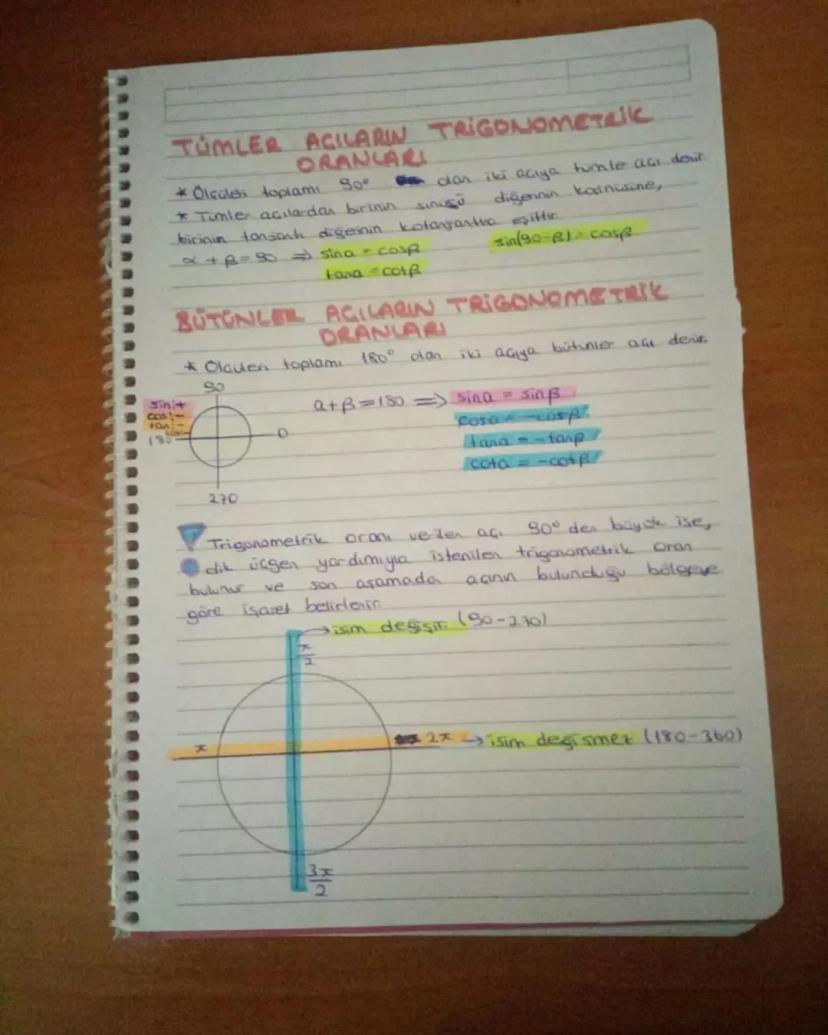 TÜMLER AÇILARIN TRİGONOMETRİK
ORANLARI
* Ölçüleri toplamı 90° olan iki açıya tümler açı denir.
* Tümler açılardan birinin sinüsü diğerinin kosinüsüne,
birinin tanjantı diğerinin kotanjantına eşittir.
α + β = 90 ⇒ sina = cosβ sin(90-β) = cosβ
tana = cotβ
BÜTÜNLER AÇILARIN TRİGONOMETRİK
ORANLARI
* Ölçüleri toplamı 180° olan iki açıya bütünler açı denir.
90
sin:+
cos:-
tan:-
cot:-
180
0
270
a+β=180 ⇒ sina = sinβ
cosa = -cosβ
tana = -tanβ
cota = -cotβ
Trigonometrik oranı verilen açı 90° den büyük ise,
dik üçgen yardımıyla istenilen trigonometrik oran
bulunur ve son aşamada açının bulunduğu bölgeye
göre işaret belirlenir.
→ isim değişir (90-270)
π/2
π
2π → isim değişmez (180-360)
3π/2